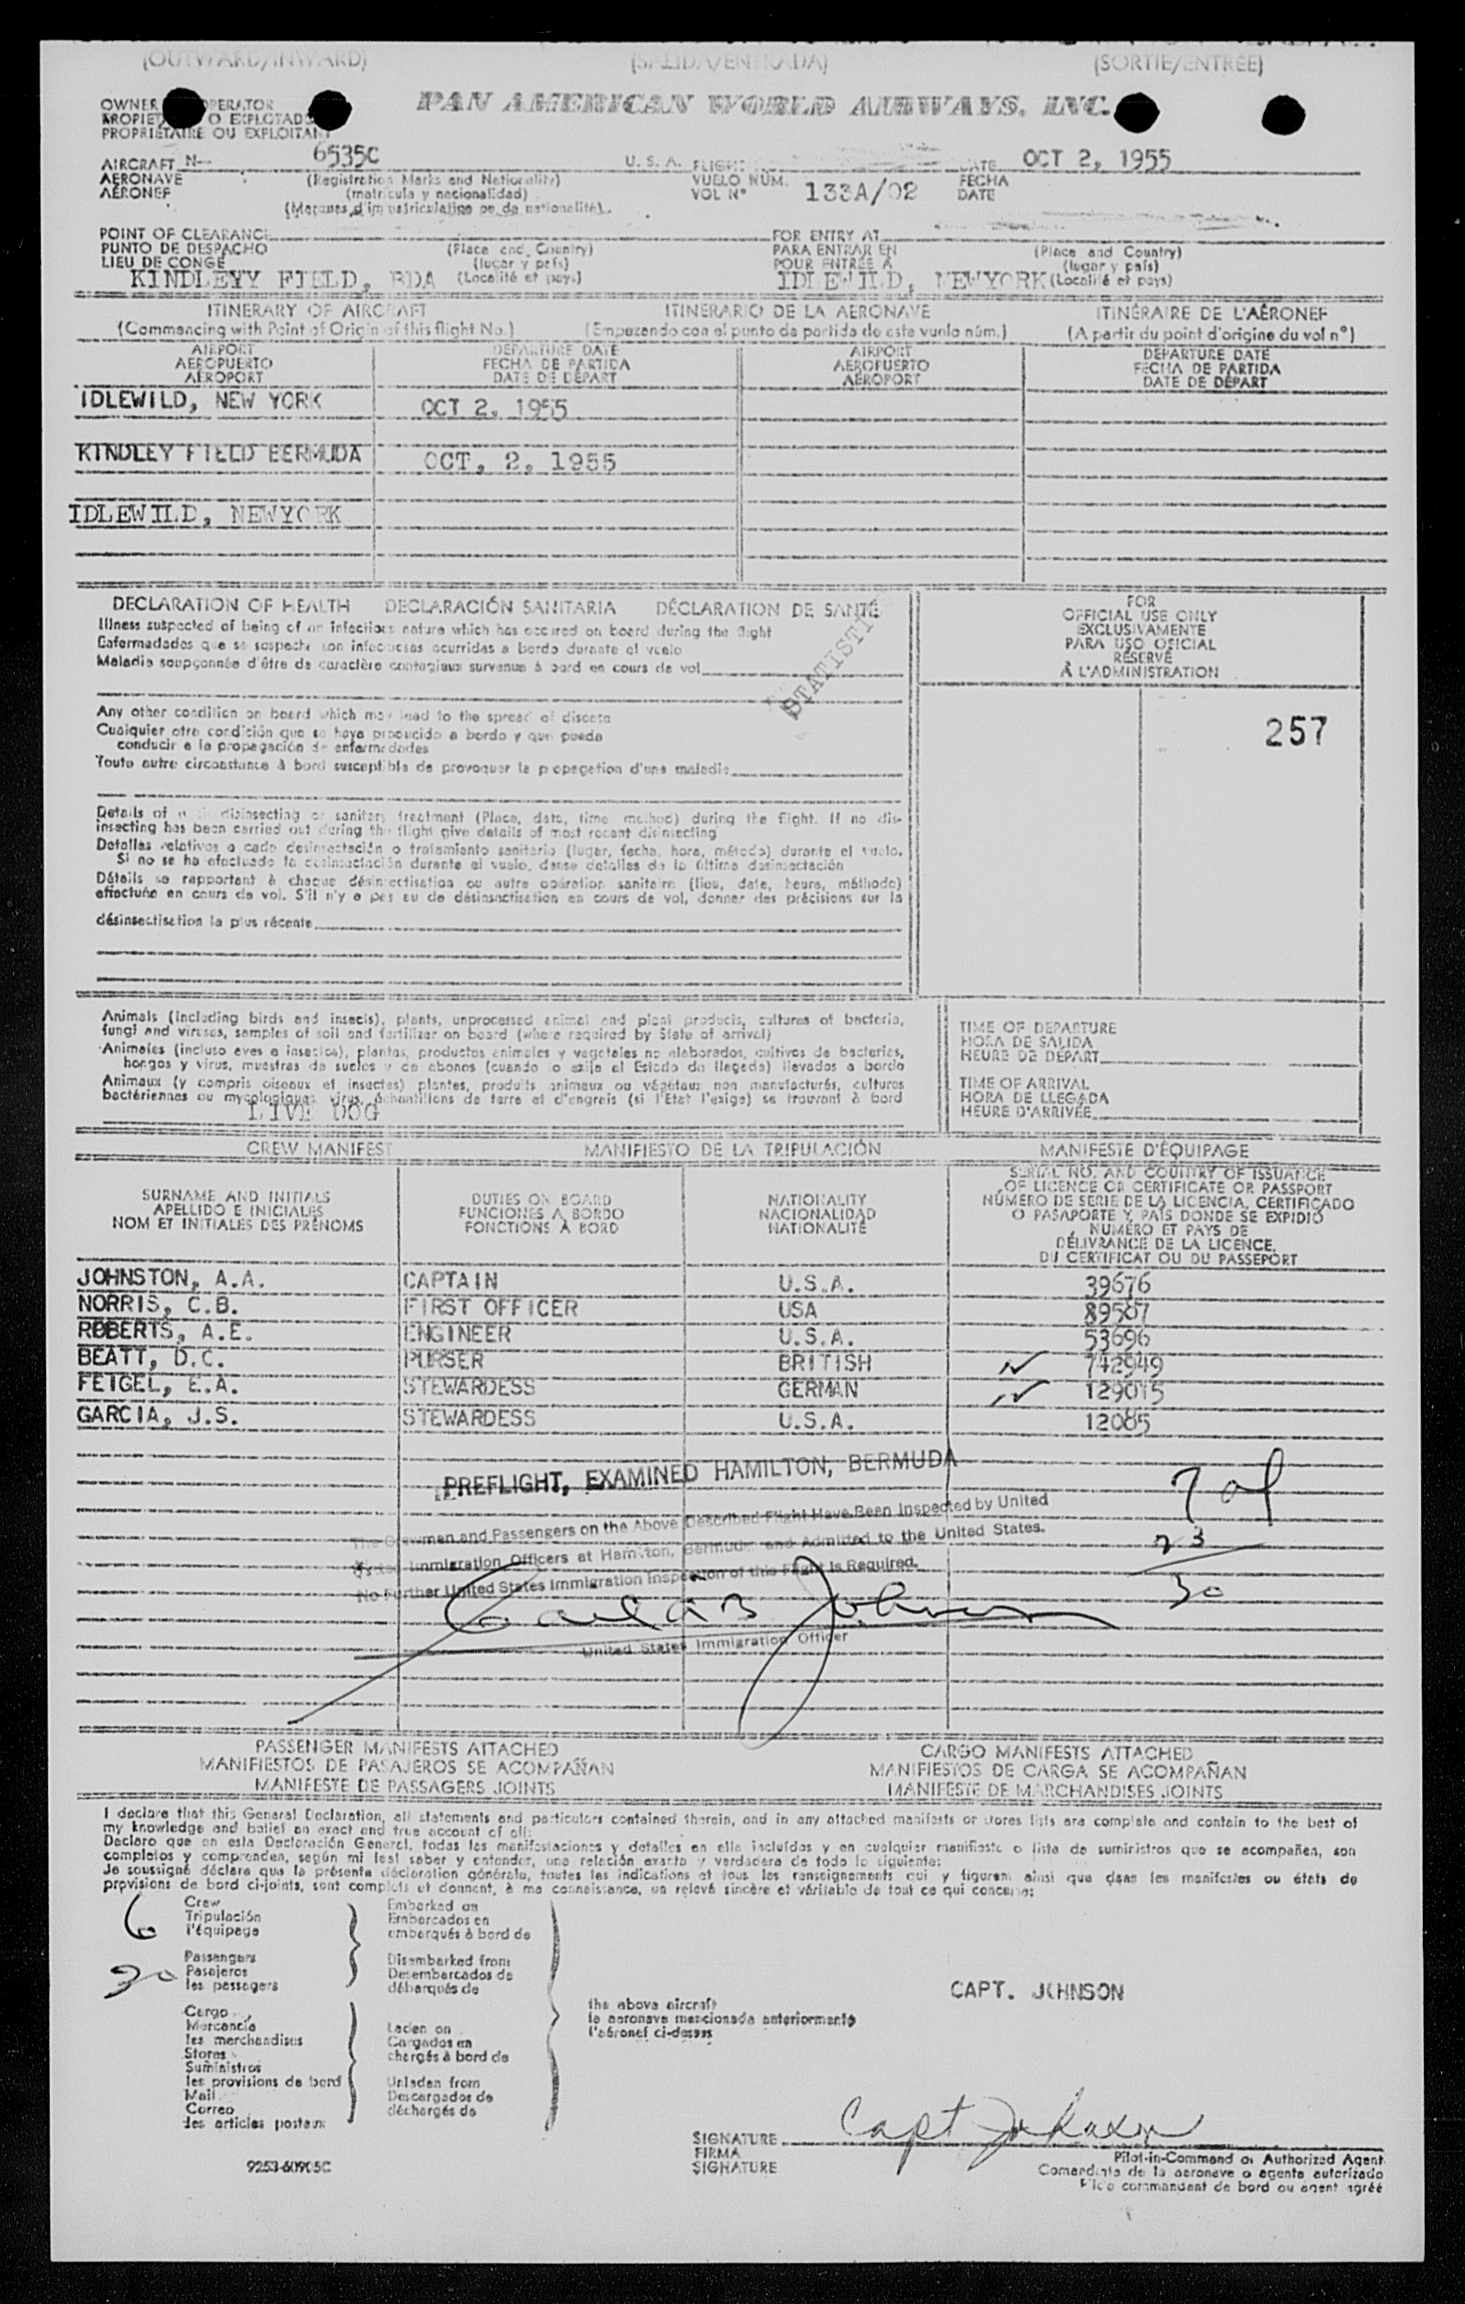 (OUTWARD/INWARD) (SALIDA/ENTRADA) (SORTIE/ENTRÉE)
OWNER OPERATOR PAN AMERICAN WORLD AIRWAYS, INC.
O EXPLOTADOR
PROPRIÉTAIRE OU EXPLOITANT
AIRCRAFT N- 6535C U. S. A. FLIGHT DATE OCT 2, 1955
AERONAVE (Registration Marks and Nationality) VUELO NÚM. 133A/02 FECHA
AÉRONEF (matrícula y nacionalidad) VOL N° DATE
(Marques d'immatriculation ou de nationalité)
POINT OF CLEARANCE FOR ENTRY AT
PUNTO DE DESPACHO (Place and Country) PARA ENTRAR EN (Place and Country)
LIEU DE CONGÉ (lugar y país) POUR ENTRÉE À (lugar y país)
KINDLEYY FIELD, BDA (Localité et pays) IDLEWILD, NEWYORK (Localité et pays)
ITINERARY OF AIRCRAFT ITINERARIO DE LA AERONAVE ITINÉRAIRE DE L'AÉRONEF
(Commencing with Point of Origin of this flight No.) (Empezando con el punto de partida de este vuelo núm.) (A partir du point d'origine du vol n°)
AIRPORT DEPARTURE DATE AIRPORT DEPARTURE DATE
AEROPUERTO FECHA DE PARTIDA AEROPUERTO FECHA DE PARTIDA
AÉROPORT DATE DE DÉPART AÉROPORT DATE DE DÉPART
IDLEWILD, NEW YORK OCT 2, 1955
KINDLEY FIELD BERMUDA OCT, 2, 1955
IDLEWILD, NEWYORK
DECLARATION OF HEALTH DECLARACIÓN SANITARIA DÉCLARATION DE SANTÉ
Illness suspected of being of an infectious nature which has occured on board during the flight
Enfermedades que se sospecha son infecciosas ocurridas a bordo durante el vuelo
Maladie soupçonnée d'être de caractère contagieux survenue à bord en cours de vol
FOR
OFFICIAL USE ONLY
EXCLUSIVAMENTE
PARA USO OFICIAL
RÉSERVÉ
À L'ADMINISTRATION
257
Any other condition on board which may lead to the spread of disease
Cualquier otra condición que se haya producido a bordo y que pueda
conducir a la propagación de enfermedades
Toute autre circonstance à bord susceptible de provoquer la propagation d'une maladie
Details of disinsecting or sanitary treatment (Place, date, time method) during the flight. If no dis-
insecting has been carried out during the flight give details of most recent disinsecting
Detalles relativos a cada desinsectación o tratamiento sanitario (lugar, fecha, hora, método) durante el vuelo.
Si no se ha efectuado la desinsectación durante el vuelo, dense detalles de la última desinsectación
Détails se rapportant à chaque désinsectisation ou autre opération sanitaire (lieu, date, heure, méthode)
effectuée en cours de vol. S'il n'y a pas eu de désinsectisation en cours de vol, donner des précisions sur la
désinsectisation la plus récente
Animals (including birds and insects), plants, unprocessed animal and plant products, cultures of bacteria,
fungi and viruses, samples of soil and fertilizer on board (where required by State of arrival)
Animales (incluso aves e insectos), plantas, productos animales y vegetales no elaborados, cultivos de bacterias,
hongos y virus, muestras de suelos y de abonos (cuando lo exija el Estado de llegada) llevados a bordo
Animaux (y compris oiseaux et insectes) plantes, produits animaux ou végétaux non manufacturés, cultures
bactériennes ou mycologiques, virus, échantillons de terre et d'engrais (si l'Etat l'exige) se trouvant à bord
LIVE DOG
TIME OF DEPARTURE
HORA DE SALIDA
HEURE DE DÉPART
TIME OF ARRIVAL
HORA DE LLEGADA
HEURE D'ARRIVÉE
CREW MANIFEST MANIFIESTO DE LA TRIPULACIÓN MANIFESTE D'ÉQUIPAGE
SURNAME AND INITIALS DUTIES ON BOARD NATIONALITY
APELLIDO E INICIALES FUNCIONES A BORDO NACIONALIDAD
NOM ET INITIALES DES PRÉNOMS FONCTIONS À BORD NATIONALITÉ
SERIAL NO. AND COUNTRY OF ISSUANCE
OF LICENCE OR CERTIFICATE OR PASSPORT
NÚMERO DE SERIE DE LA LICENCIA, CERTIFICADO
O PASAPORTE Y PAÍS DONDE SE EXPIDIÓ
NUMÉRO ET PAYS DE
DÉLIVRANCE DE LA LICENCE,
DU CERTIFICAT OU DU PASSEPORT
JOHNSTON, A.A. CAPTAIN U.S.A. 39676
NORRIS, C.B. FIRST OFFICER USA 89507
ROBERTS, A.E. ENGINEER U.S.A. 53696
BEATT, D.C. PURSER BRITISH 742949
FEIGEL, E.A. STEWARDESS GERMAN 129015
GARCIA, J.S. STEWARDESS U.S.A. 12085
PREFLIGHT, EXAMINED HAMILTON, BERMUDA
The Crewmen and Passengers on the Above Described Flight Have Been Inspected by United
States Immigration Officers at Hamilton, Bermuda and Admitted to the United States.
No Further United States Immigration Inspection of this Flight Is Required.
United States Immigration Officer
7
23
30
PASSENGER MANIFESTS ATTACHED CARGO MANIFESTS ATTACHED
MANIFIESTOS DE PASAJEROS SE ACOMPAÑAN MANIFIESTOS DE CARGA SE ACOMPAÑAN
MANIFESTE DE PASSAGERS JOINTS MANIFESTE DE MARCHANDISES JOINTS
I declare that this General Declaration, all statements and particulars contained therein, and in any attached manifests or stores lists are complete and contain to the best of
my knowledge and belief an exact and true account of all:
Declaro que en esta Declaración General, todas las manifestaciones y detalles en ella incluídos y en cualquier manifiesto o lista de suministros que se acompañen, son
completos y comprenden, según mi leal saber y entender, una relación exacta y verdadera de todo lo siguiente:
Je soussigné déclare que la présente déclaration générale, toutes les indications et tous les renseignements qui y figurent ainsi que dans les manifestes ou états de
provisions de bord ci-joints, sont complets et donnent, à ma connaissance, un relevé sincère et véritable de tout ce qui concerne:
6 Crew Embarked on
Tripulación Embarcados en
l'équipage embarqués à bord de
30 Passengers Disembarked from
Pasajeros Desembarcados de
les passagers débarqués de
CAPT. JOHNSON
the above aircraft
la aeronave mencionada anteriormente
l'aéronef ci-dessus
Cargo
Mercancía Laden on
les marchandises Cargados en
Stores chargés à bord de
Suministros
les provisions de bord Unladen from
Mail Descargados de
Correo déchargés de
des articles postaux
SIGNATURE Capt Johnson
FIRMA Pilot-in-Command or Authorized Agent
SIGNATURE Comandante de la aeronave o agente autorizado
Pilote commandant de bord ou agent agréé